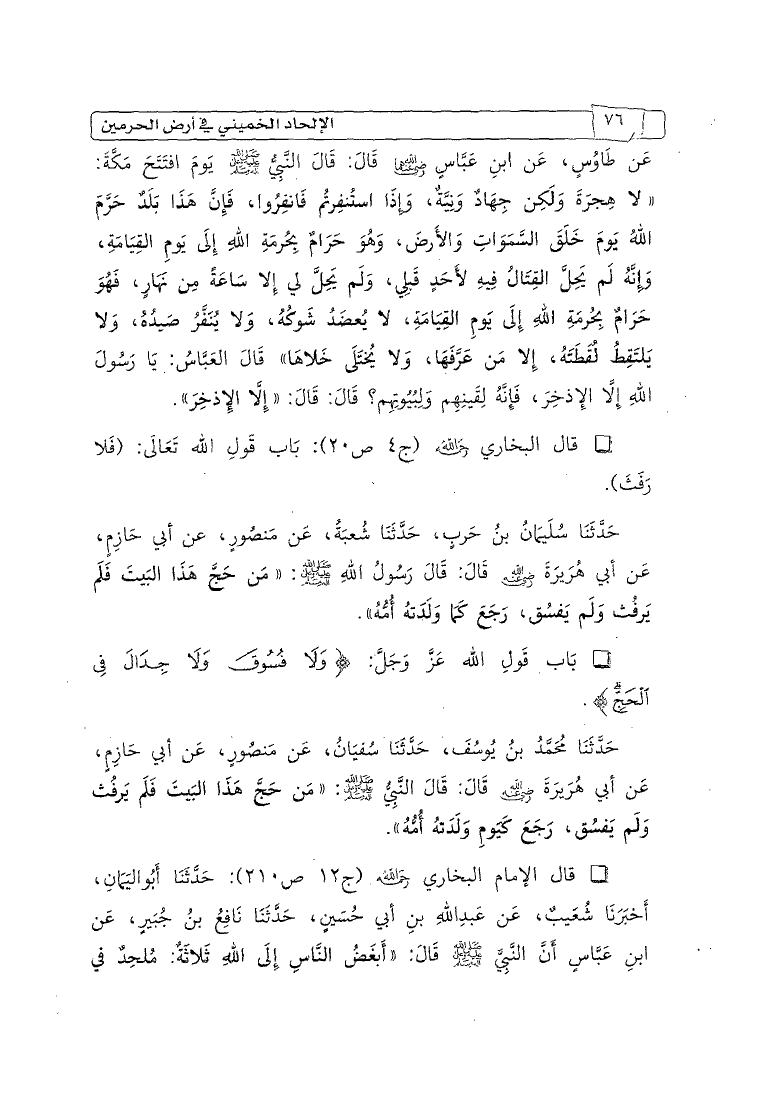 ٧٦ الإلحاد الخميني في أرض الحرمين
عَن طَاوُسٍ، عَن ابنِ عَبَّاسٍ رضي الله عنهما قَالَ: قَالَ النَّبِيُّ ﷺ يَومَ افتَتَحَ مَكَّةَ:
«لا هِجرَةَ وَلَكِن جِهَادٌ وَنِيَّةٌ، وَإِذَا استُنفِرتُم فَانفِرُوا، فَإِنَّ هَذَا بَلَدٌ حَرَّمَ
اللهُ يَومَ خَلَقَ السَّمَوَاتِ وَالأَرضَ، وَهُوَ حَرَامٌ بِحُرمَةِ اللهِ إِلَى يَومِ القِيَامَةِ،
وَإِنَّهُ لَم يَحِلَّ القِتَالُ فِيهِ لأَحَدٍ قَبلِي، وَلَم يَحِلَّ لي إلا سَاعَةً مِن نَهَارٍ، فَهُوَ
حَرَامٌ بِحُرمَةِ اللهِ إِلَى يَومِ القِيَامَةِ، لا يُعضَدُ شَوكُهُ، وَلا يُنَفَّرُ صَيدُهُ، وَلا
يَلتَقِطُ لُقَطَتَهُ، إلا مَن عَرَّفَهَا، وَلا يُختَلَى خَلاهَا» قَالَ العَبَّاسُ: يَا رَسُولَ
اللهِ إلَّا الإذخِرَ، فَإِنَّهُ لِقَينِهِم وَلِبُيُوتِهِم؟ قَالَ: قَالَ: «إلَّا الإذخِرَ».
❏ قال البخاري رحمه الله (ج٤ ص٢٠): بَاب قَولِ الله تَعَالَى: (فَلا
رَفَثَ).
حَدَّثَنَا سُلَيمَانُ بنُ حَربٍ، حَدَّثَنَا شُعبَةُ، عَن مَنصُورٍ، عن أبي حَازِمٍ،
عَن أبي هُرَيرَةَ رضي الله عنه قَالَ: قَالَ رَسُولُ اللهِ ﷺ: «مَن حَجَّ هَذَا البَيتَ فَلَم
يَرفُث وَلَم يَفسُق، رَجَعَ كَمَا وَلَدَتهُ أُمُّهُ».
❏ بَاب قَولِ الله عَزَّ وَجَلَّ: ﴿وَلَا فُسُوقَ وَلَا جِدَالَ فِي
ٱلْحَجِّۗ﴾.
حَدَّثَنَا مُحَمَّدُ بنُ يُوسُفَ، حَدَّثَنَا سُفيَانُ، عَن مَنصُورٍ، عَن أبي حَازِمٍ،
عَن أبي هُرَيرَةَ رضي الله عنه قَالَ: قَالَ النَّبِيُّ ﷺ: «مَن حَجَّ هَذَا البَيتَ فَلَم يَرفُث
وَلَم يَفسُق، رَجَعَ كَيَومِ وَلَدَتهُ أُمُّهُ».
❏ قال الإمام البخاري رحمه الله (ج١٢ ص٢١٠): حَدَّثَنَا أَبُواليَمَانِ،
أَخبَرَنَا شُعَيبٌ، عَن عَبدِاللهِ بنِ أبي حُسَينٍ، حَدَّثَنَا نَافِعُ بنُ جُبَيرٍ، عَن
ابنِ عَبَّاسٍ أَنَّ النَّبِيَّ ﷺ قَالَ: «أَبغَضُ النَّاسِ إِلَى اللهِ ثَلاثَةٌ: مُلحِدٌ في